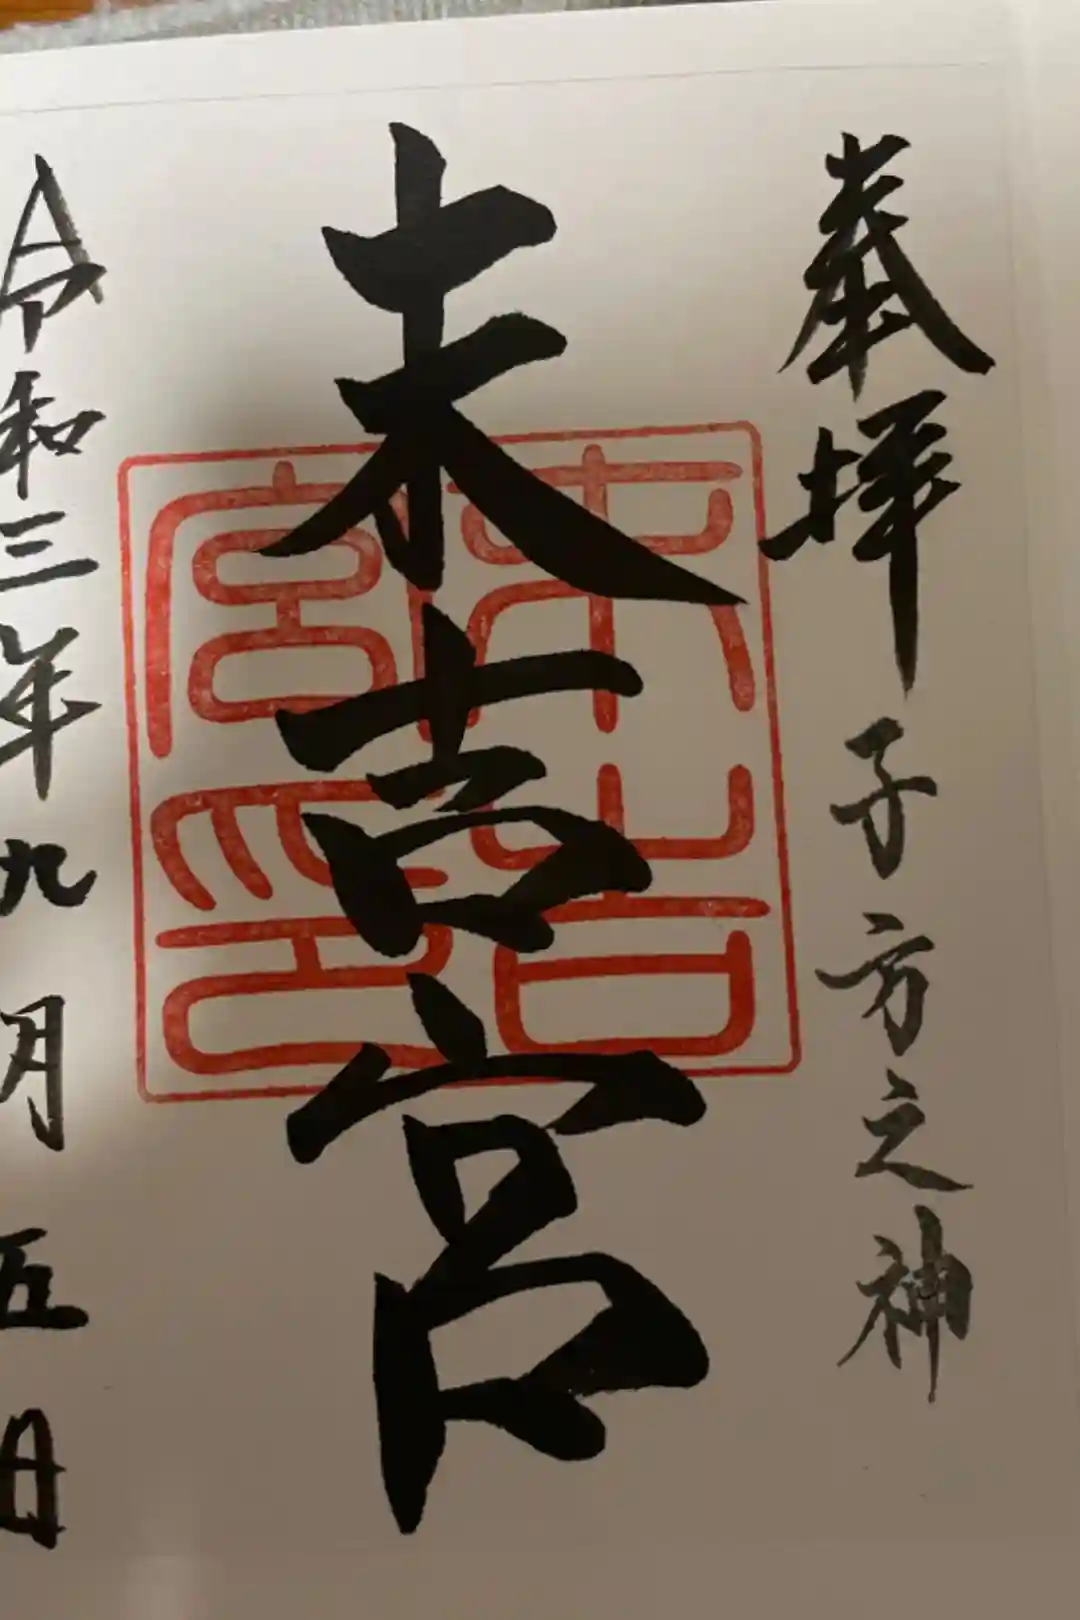 奉拝 子方之神
末吉宮
末吉宮印
令和三年九月五日